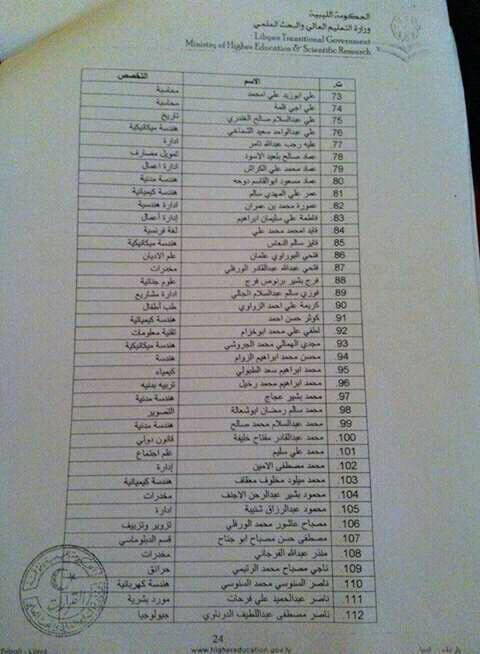 الحكومة الليبية
وزارة التعليم العالي والبحث العلمي
Libyan Transitional Government
Ministry of Higher Education & Scientific Research
ت. الاسم التخصص
73. علي ابوزيد علي امحمد محاسبة
74. علي اجي قلمة محاسبة
75. علي عبدالسلام صالح الغندري تاريخ
76. علي عبدالواحد سعيد الشماخي هندسة ميكانيكية
77. عليه رجب عبدالله ثامر ادارة
78. عماد صالح بلعيد الاسود تمويل مصارف
79. عماد محمد علي الكراش ادارة اعمال
80. عماد مسعود ابوالقاسم دوحه هندسة مدنية
81. عمر علي المهدي سالم هندسة كيميائية
82. عمورة محمد بن عمران ادارة هندسية
83. فاطمة علي سليمان ابراهيم إدارة أعمال
84. فايد امحمد محمد علي لغة فرنسية
85. فايز سالم النعاس هندسة ميكانيكية
86. فتحي البوراوي عثمان علم الاديان
87. فتحي عبدالله عبدالقادر الورفلي مخدرات
88. فرج بشير برنوص فرج علوم جنائية
89. فوزي سالم عبدالسلام الجالي ادارة مشاريع
90. كريمة علي احمد الزواوي طب أطفال
91. كوثر حسن احمد هندسة كيميائية
92. لطفي علي محمد ابوخزام تقنية معلومات
93. مجدي الهمالي محمد الجروشي هندسة ميكانيكية
94. محسن محمد ابراهيم الزوام هندسة
95. محمد ابراهيم سعد الطبولي كيمياء
96. محمد ابراهيم محمد رخيل تربيه بدنيه
97. محمد بشير عجاج هندسة مدنية
98. محمد سالم رمضان ابوشعالة التصوير
99. محمد عبدالسلام محمد صالح هندسة مدنية
100. محمد عبدالقادر مفتاح خليفة قانون دولي
101. محمد علي سليم علم اجتماع
102. محمد مصطفى الامين إدارة
103. محمد ميلود مخلوف معقاف هندسة كيميائية
104. محمود بشير عبدالرحمن الاجنف مخدرات
105. محمود عبدالرزاق ادارة
106. مصباح عاشور محمد الورفلي تزوير وتزييف
107. مصطفى حسن مصباح ابو جناح قسم الدبلوماسي
108. منذر عبدالله الفرجاني مخدرات
109. ناجي مصباح محمد الرتيمي حرائق
110. ناصر السنوسي محمد السنوسي هندسة كهربائية
111. ناصر عبدالحميد علي فرحات مورد بشرية
112. ناصر مصطفى عبداللطيف الدرناوي جيولوجيا
24
www.highereducation.gov.ly